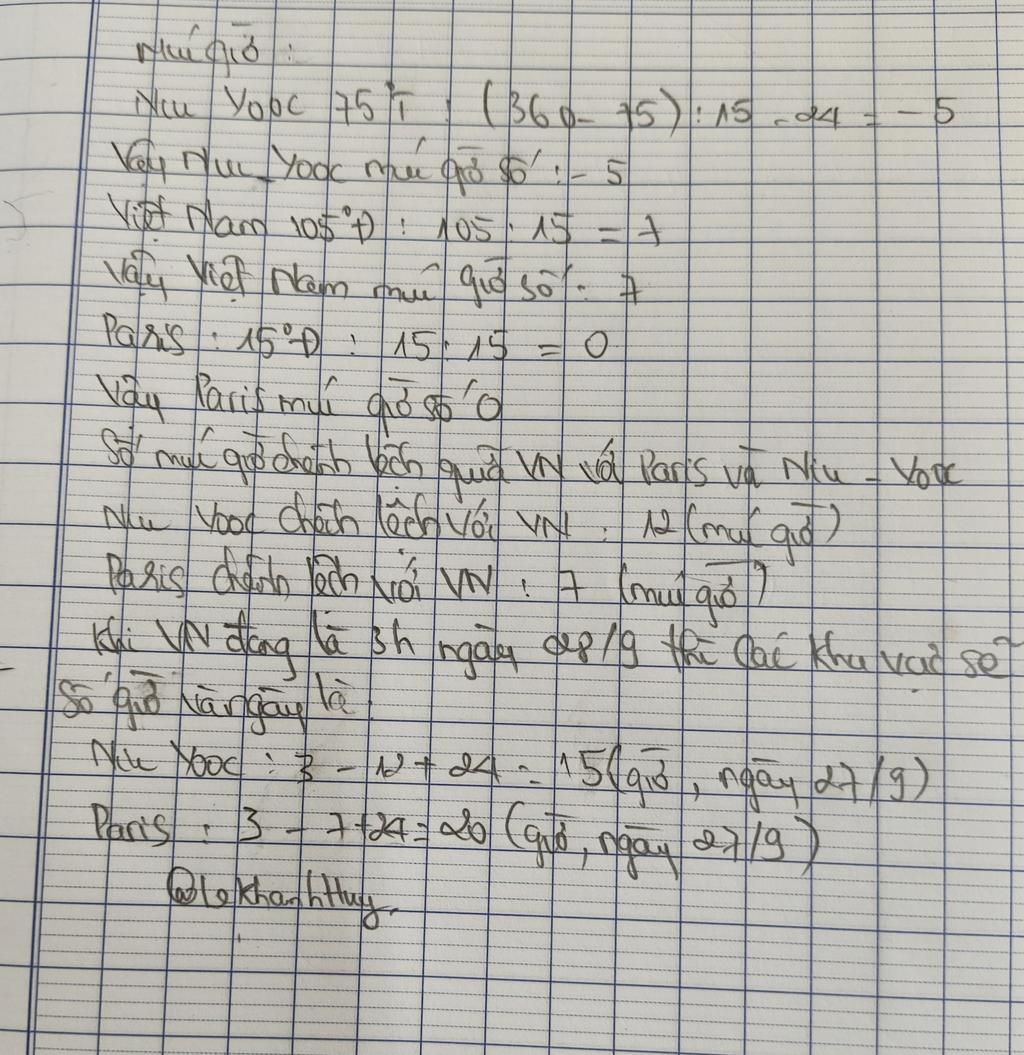 Múi giờ :
Niu Yooc 75°T : (360 - 75) : 15 - 24 = -5
Vậy Niu_Yooc múi giờ số : -5
Việt Nam 105°Đ : 105 : 15 = 7
Vậy Việt Nam múi giờ số : 7
Paris : 15°Đ : 15 : 15 = 0
Vậy Paris múi giờ số 0
Số múi giờ chênh lệch giữa VN với Paris và Niu - Yooc
Niu Yooc chênh lệch với VN : 12 (múi giờ)
Paris chênh lệch với VN : 7 (múi giờ)
Khi VN đang là 3h ngày 28/9 thì các khu vực sẽ
số giờ và ngày là
Niu Yooc : 3 - 12 + 24 = 15 (giờ, ngày 27/9)
Paris : 3 - 7 + 24 = 20 (giờ, ngày 27/9)
@LeKhanhHuy.